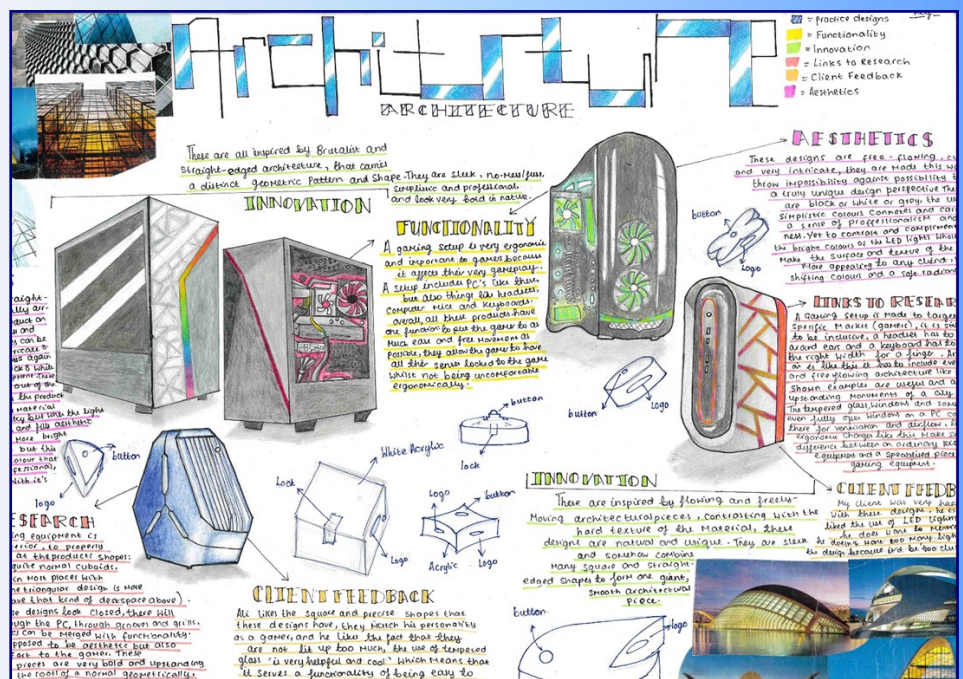 Architecture
ARCHITECTURE
= practice designs
= Functionality
= Innovation
= Links to Research
= Client Feedback
= Aesthetics
These are all inspired by Brutalist and
straight-edged architecture, that carries
a distinct geometric Pattern and Shape. They are sleek, no-mess/fuss,
simplistic and professional
and look very bold in nature.
INNOVATION
FUNCTIONALITY
A gaming setup is very ergonomic
and important to gamers because
it affects their very gameplay.
A setup includes PC's like these,
but also things like headsets,
computer mice and keyboards.
overall, all these products have
one function: to put the gamer to as
Much ease and free movement as
Possible, they allow the gamer to have
all their senses locked to the game
whilst not being uncomfortable
ergonomically.
AESTHETICS
These designs are free-flowing, cu
and very intricate, they are made this wa
throw impossibility against possibility t
a truly unique design perspective The
are black or white or grey; the us
simplistic colours connotes and car
a sense of proffessionalism and
ness. Yet to contrast and complement
the bright colours of the LED lights whole
Make the surface and texture of the
More appealing to any client,
shifting colours and a safe
button
Logo
LINKS TO RESEAR
A Gaming setup is Made to target
specific Market (gamers), it is
to be inclusive, a headset has to
around ears and a keyboard has to
the right width for a finger.
it has to include
and free flowing architecture like
Shown examples are useful and a
upstanding Monuments of a city.
The tempered glass, windows and som
even fully open windows on a PC ca
there for ventilation and airflow.
ergonomic changes like this Make
difference between an ordinary pie
equipment and a specialised piece
gaming equipment.
CLIENT FEEDB
My client was very hap
with these designs, he es
liked the use of LED lights
he does want to
he doesn't want too many light
the design because it'd be too clut
button
Logo
button
lock
White Acrylic
Lock
Logo
Logo
button
Acrylic
Logo
INNOVATION
These are inspired by flowing and freely-
Moving architectural pieces, contrasting with the
hard texture of the Material, these
designs are natural and unique. They are sleek
and somehow combine
Many square and straight-
edged shapes to form one giant,
smooth architectural
Piece.
button
Logo
CLIENT FEEDBACK
Ali likes the square and precise shapes that
these designs have, they match his personality
as a gamer, and he likes the fact that they
are not lit up too much, the use of tempered
glass 'is very helpful and cool' which means that
it serves a functionality of being easy to
aight-
ally arr-
duct an
and
y can be
ricate
us again
ck & white
out of the
the product
Material
but when the light
and fill aesthetic
More bright
but this
olour that
personal,
with it's
button
logo
ESEARCH
ing equipment is
erior, to properly
at the products shapes:
quite normal cuboids,
in Most places with
he triangular design is More
ave that kind of deskspace above).
e designs look closed, there will
ugh the PC, through grooves and grills,
cs can be Merged with functionality.
pposed to be aesthetic but also
fort to the gamer. These
pieces are very bold and upstanding
the roof of a normal geometrically,